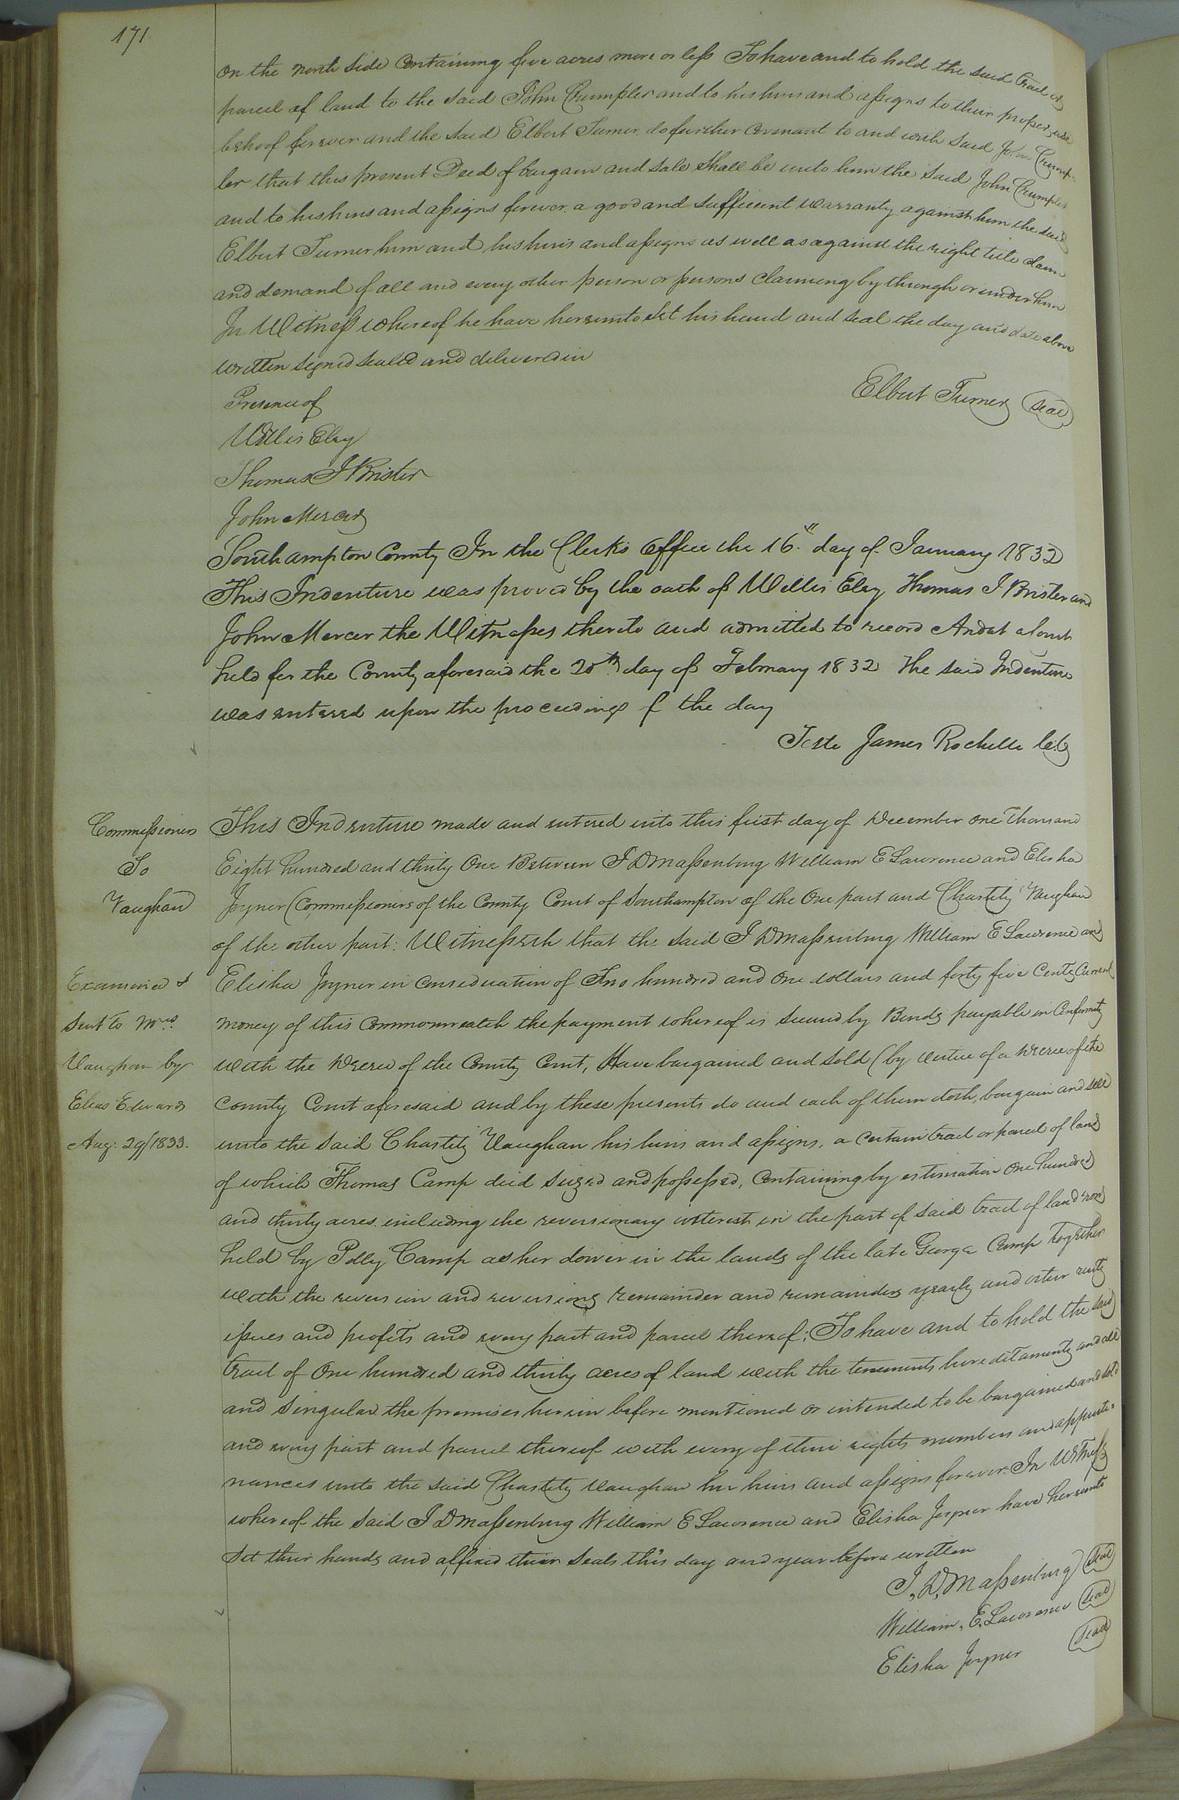 171
on the north side Containing five acres more or less To have and to hold the said tract or
parcel of land to the said John Crumpler and to his heirs and assigns to their proper use
behoof forever and the said Elbert Turner do further covenant to and with said John Crump-
ler that this present Deed of bargain and sale shall be unto him the said John Crumpler
and to his heirs and assigns forever a good and sufficient warranty against him the said
Elbert Turner him and his heirs and assigns as well as against the right title claim
and demand of all and every other person or persons claiming by through or under him
In Witness whereof he have hereunto set his hand and seal the day and date above
written signed sealed and delivered in
Presence of
Elbert Turner (seal)
Willis Eley
Thomas J Brister
John Mercer
Southampton County In the Clerks Office the 16th day of January 1832
This Indenture was proved by the oath of Willis Eley Thomas J Brister and
John Mercer the Witnesses thereto and admitted to record And at a Court
held for the County aforesaid the 20th day of February 1832 The said Indenture
was entered upon the proceedings of the day
Teste James Rochelle
Commissioners
To
Vaughan
Examined &
Sent to Mrs
Vaughan by
Elias Edwards
Aug: 29/1833.
This Indenture made and entered into this first day of December One Thousand
Eight hundred and thirty One Between J D Massenburg William E Lawrence and Elisha
Joyner (Commissioners of the County Court of Southampton of the One part and Chastity Vaughan
of the other part: Witnesseth that the said J D Massenburg William E Lawrence and
Elisha Joyner in consideration of Two hundred and one dollars and forty five Cents Current
money of this Commonwealth the payment whereof is secured by Bonds payable in Conformity
with the Decree of the County Court, Have bargained and sold (by virtue of a Decree of the
County Court aforesaid and by these presents do and each of them doth, bargain and sell
unto the said Chastity Vaughan his heirs and assigns, a certain tract or parcel of land
of which Thomas Camp died seized and possessed, Containing by estimation One hundred
and thirty acres, including the reversionary interest in the part of said tract of land now
held by Polly Camp as her dower in the lands of the late George Camp together
with the reversion and reversions remainder and remainders yearly and other rents
issues and profits and every part and parcel thereof; To have and to hold the said
tract of One hundred and thirty acres of land with the tenements hereditaments and all
and singular the premises herein before mentioned or intended to be bargained and sold
and every part and parcel thereof with every of their rights members and appurte-
nances unto the said Chastity Vaughan her heirs and assigns forever. In Witness
whereof the said J D Massenburg William E Lawrence and Elisha Joyner have hereunto
set their hands and affixed their seals this day and year before written
J. D. Massenburg (seal)
William. E. Lawrence (seal)
Elisha Joyner (seal)